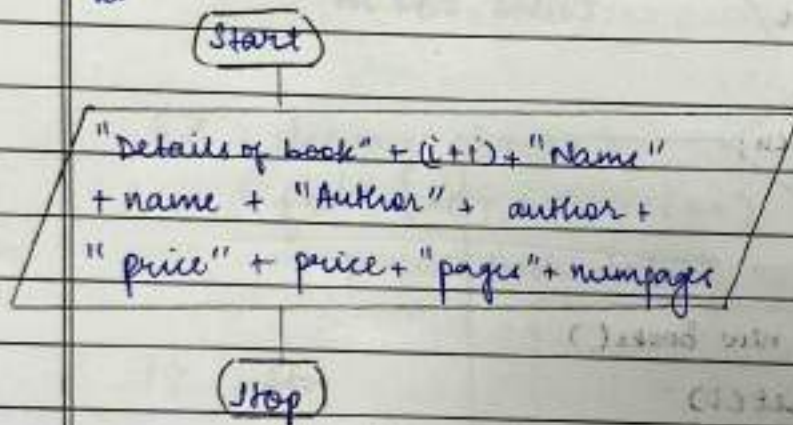 Start
"Details of book" + (i+i) + "Name"
+ name + "Author" + author +
"price" + price + "pages" + numpages
Stop